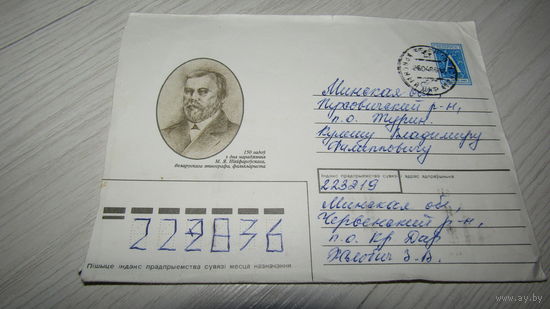 150 гадоў
з дня нараджэння
М. Я. Нікіфароўскага,
беларускага этнографа, фалькларыста
Минская обл.
Пуховичский р-н,
п.о. Турин.
Кулешу Владимиру
Филипповичу
Індэкс прадпрыемства сувязі
адрас адпраўшчыка
223219
Минская обл,
Червенский р-н,
п.о. Кр Дар
З.В.
222836
Пішыце індэкс прадпрыемства сувязі месца назначэння
www.ay.by